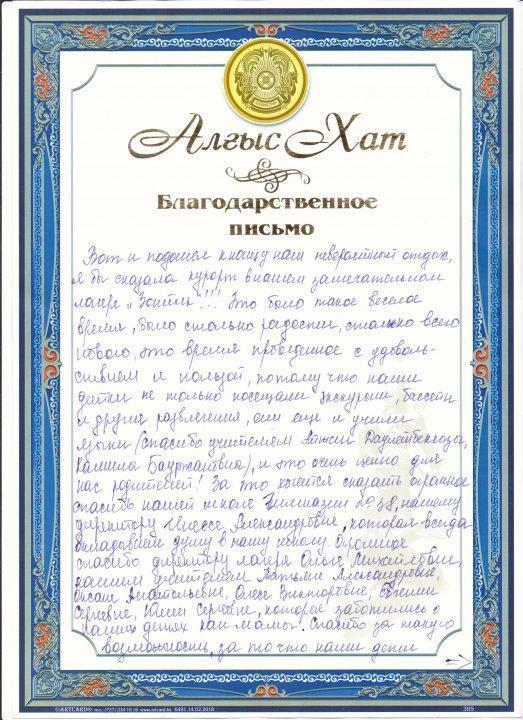 Алғыс Хат
Благодарственное
письмо
Вот и подошел к концу наш невероятный отдых,
я бы сказала курорт в нашем замечательном
лагере "Зонтик"!!! Это было такое веселое
время, было столько радости, столько всего
нового, это время проведенное с удоволь-
ствием и пользой, потому что наши
детки не только посещали экскурсии, бассейн
и другие развлечения, они еще и учили
языки (спасибо учителям
Камила Бауржановна), и это очень ценно для
нас родителей! За это хочется сказать огромное
спасибо нашей школе Гимназии №38, нашему
директору Александровне, которая всегда
вкладывает душу в нашу школу. Огромное
спасибо директору лагеря Ольге Михайловне,
нашим учителям Татьяне Александровне,
Оксане Анатольевне, Олесе Викторовне, Евгении
Сергеевне, Юлии Сергеевне, которые заботились о
наших детях как мамы. Спасибо за такую
возможность, за то что наши дети
©ARTCARD® тел.: (727) 234 16 16 www.artcard.kz 6491.14.02.2018
305